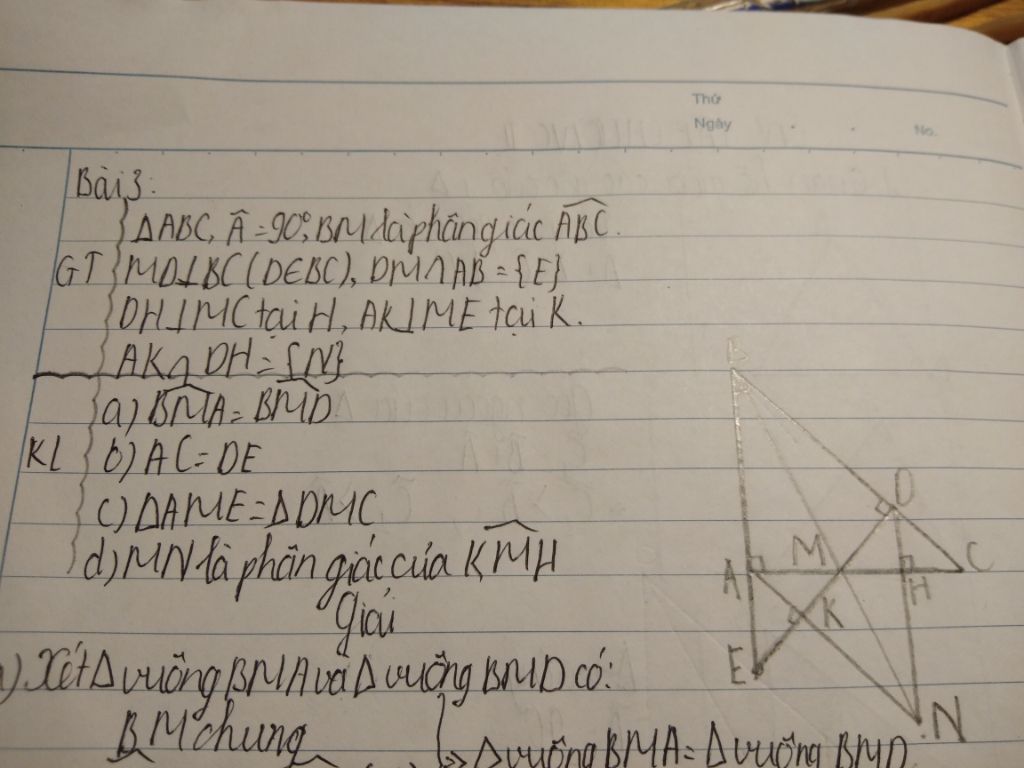 Thứ
Ngày
No.
Bài 3:
ΔABC, Â = 90°, BM là phân giác ABC.
GT MD⊥BC (D∈BC), DM∩AB = {E}
DH⊥MC tại H, AK⊥ME tại K.
AK∩DH = {N}
a) BMA = BMD
KL b) AC = DE
c) ΔAME = ΔDMC
d) MN là phân giác của KMH
Giải
a) Xét Δ vuông BMA và Δ vuông BMD có:
BM chung
=> Δ vuông BMA = Δ vuông BMD
B
D
A M H C
K
E
N